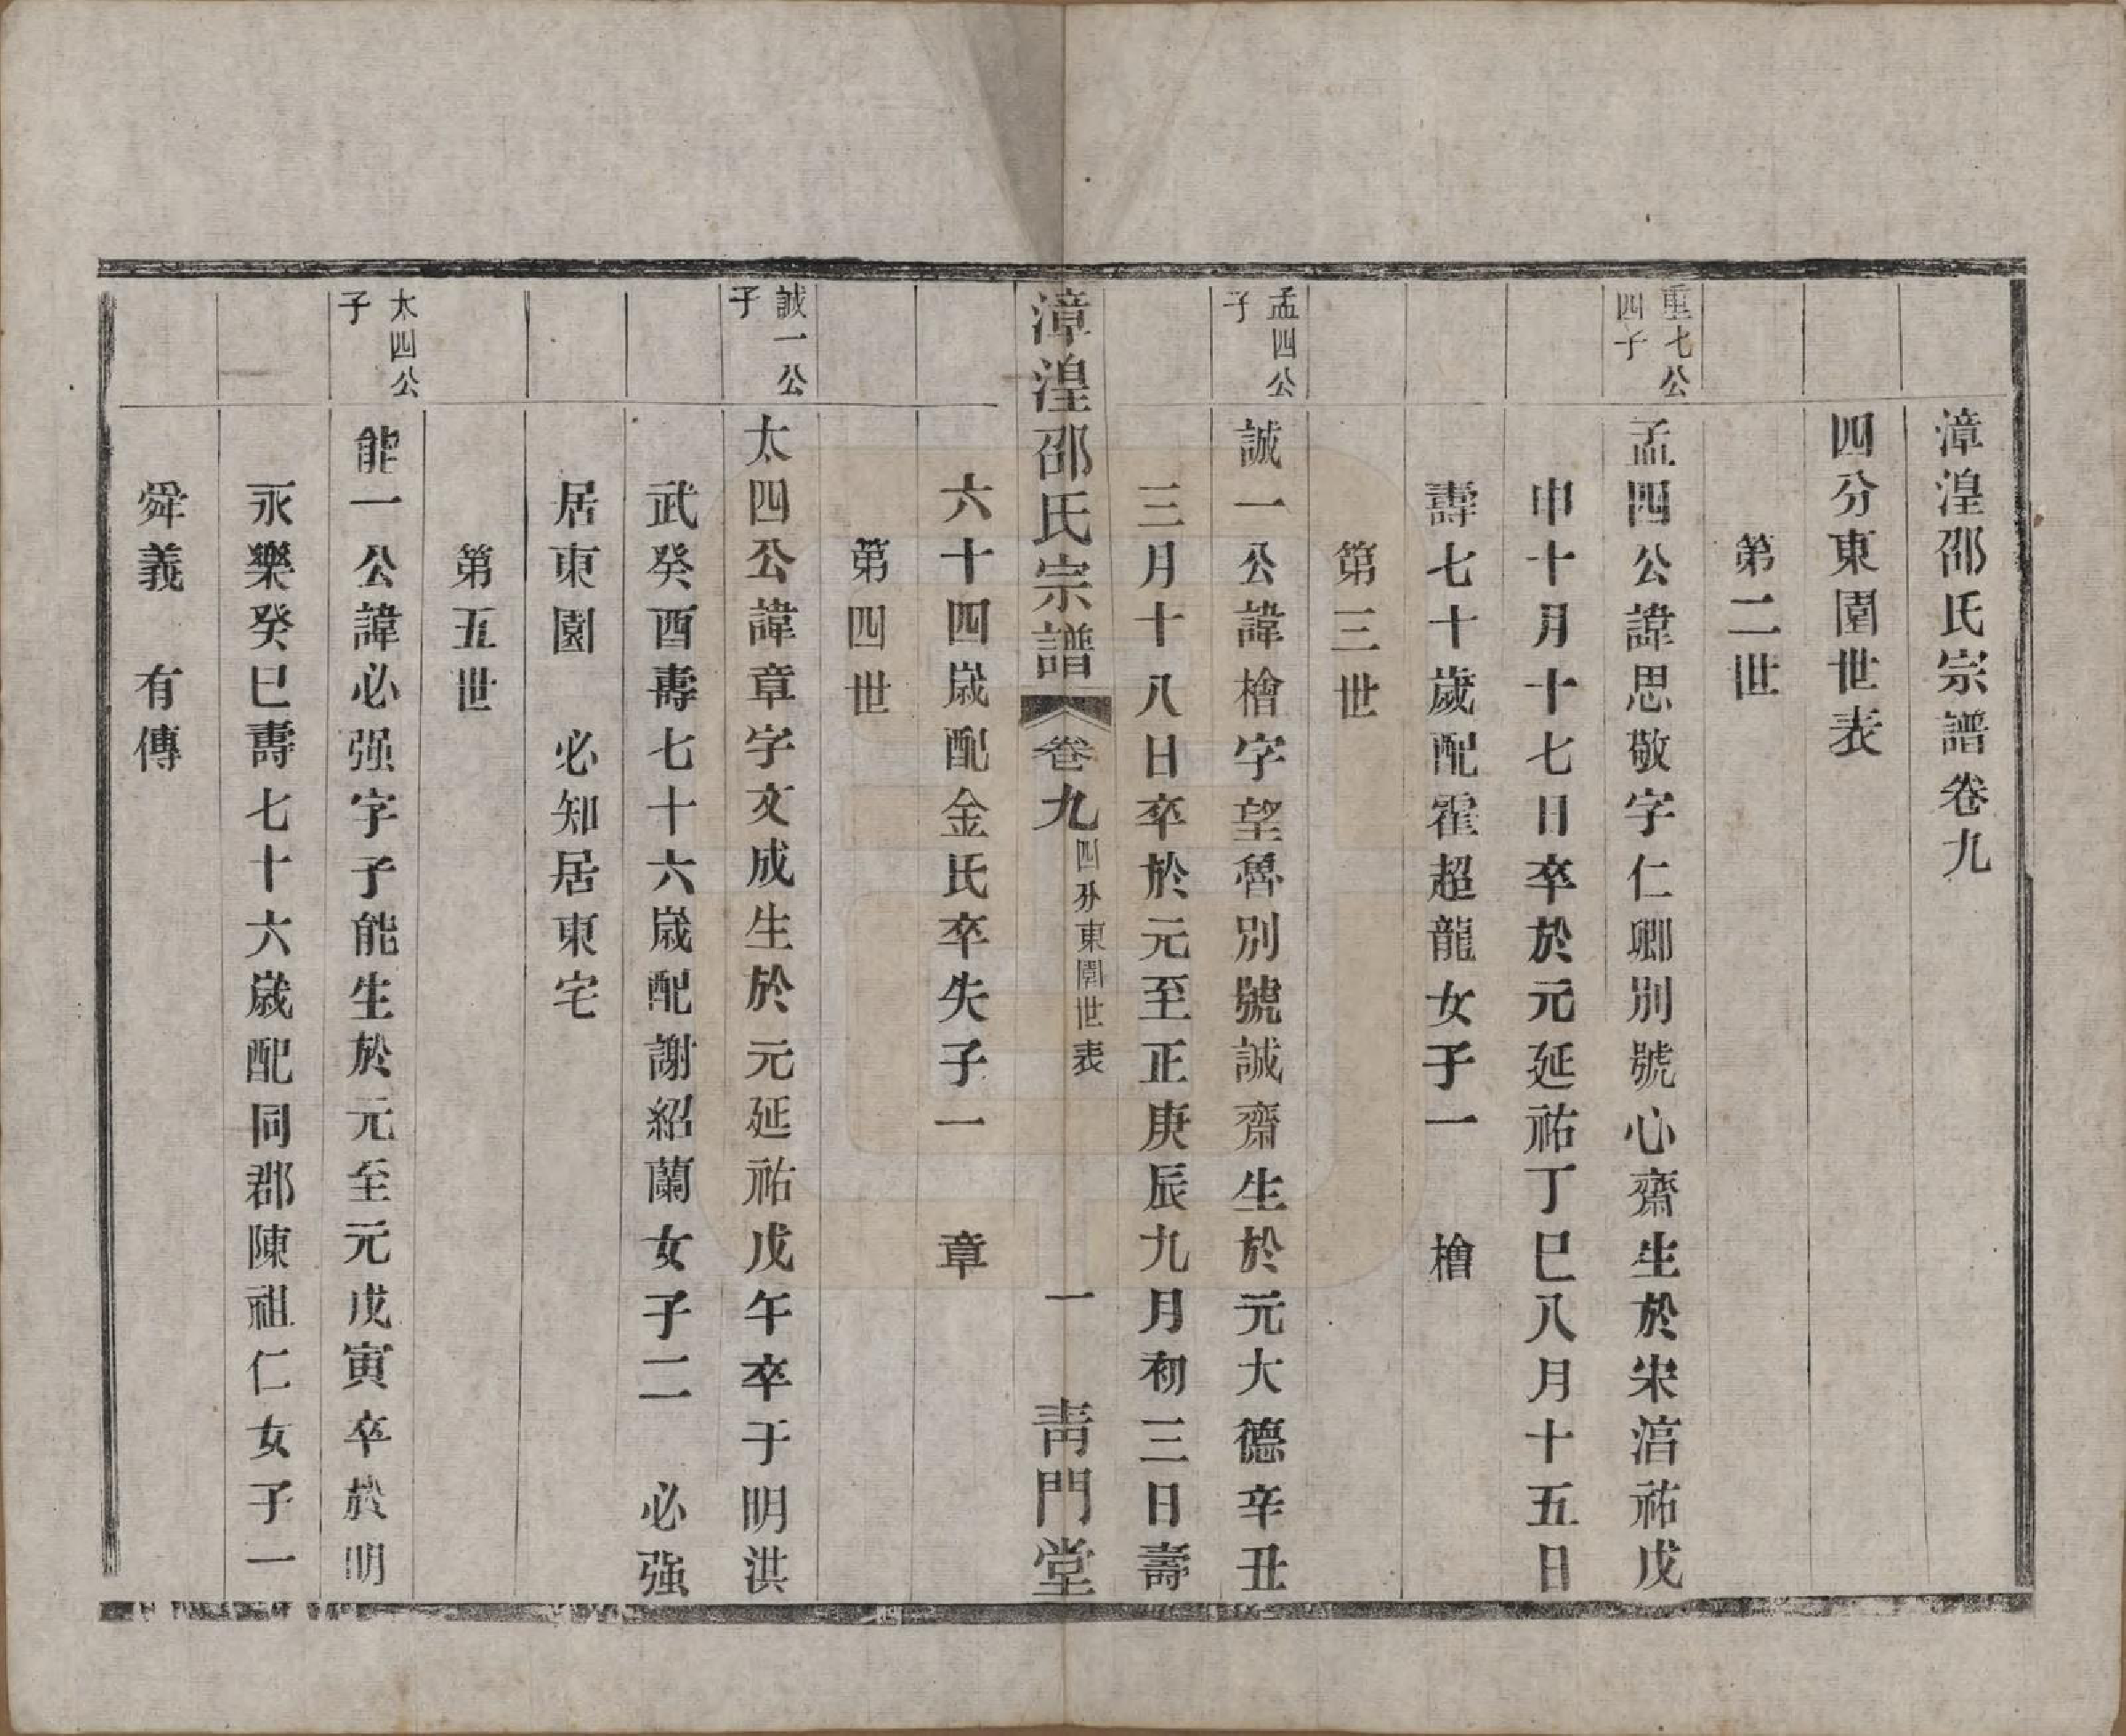 漳湟邵氏宗譜卷九
四分東園世表
第二世
重七公四子
孟四公諱思敬字仁卿別號心齋生於宋淯祐戊
申十月十七日卒於元延祐丁巳八月十五日
壽七十歲配霍超龍女子一 檜
第三世
孟四公子
誠一公諱檜字望魯別號誠齋生於元大德辛丑
三月十八日卒於元至正庚辰九月初三日壽
漳湟邵氏宗譜 卷九 四分東園世表 一 靑門堂
六十四歲配金氏卒失子一 章
第四世
誠一公子
太四公諱章字文成生於元延祐戊午卒于明洪
武癸酉壽七十六歲配謝紹蘭女子二 必强
居東園 必知居東宅
第五世
太四公子
能一公諱必强字子能生於元至元戊寅卒於明
永樂癸巳壽七十六歲配同郡陳祖仁女子一
舜義 有傳